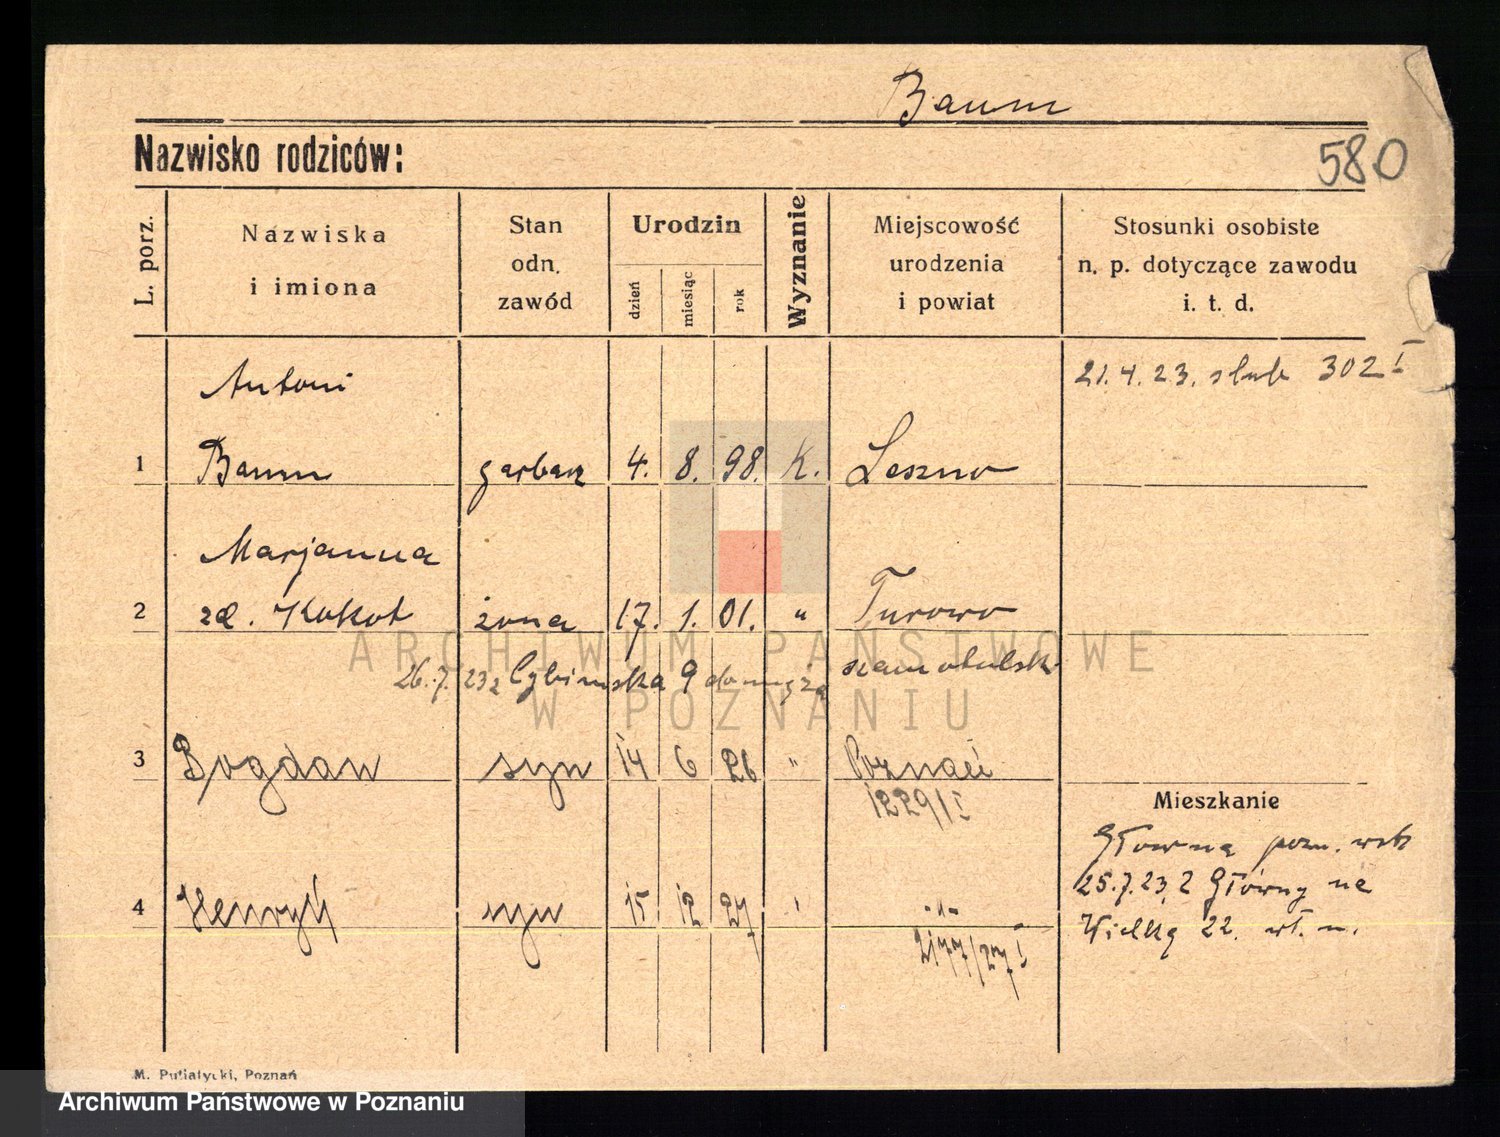 Baum
Nazwisko rodziców:
580
L. porz.
Nazwiska
i imiona
Stan
odn.
zawód
Urodzin
dzień
miesiąc
rok
Wyznanie
Miejscowość
urodzenia
i powiat
Stosunki osobiste
n. p. dotyczące zawodu
i. t. d.
Antoni
21.4.23. slub 302 I
1 Baum garbarz 4. 8. 98. K. Leszno
Marjanna
2 zd. Kokot żona 17. 1. 01. " Turowo
ARCHIWUM PAŃSTWOWE
W POZNANIU
26.7.23 z Cybinska 9 do męża szamotulski
3 Bogdan syn 14 6 26 " Poznań
1229/I
Mieszkanie
Głowna pozn. wsch
25.7.23 z Główny na
Wielką 22. wł. m.
4 Henryk syn 15 12 27 " -"-
2177/27 I
M. Putiatycki, Poznań
Archiwum Państwowe w Poznaniu